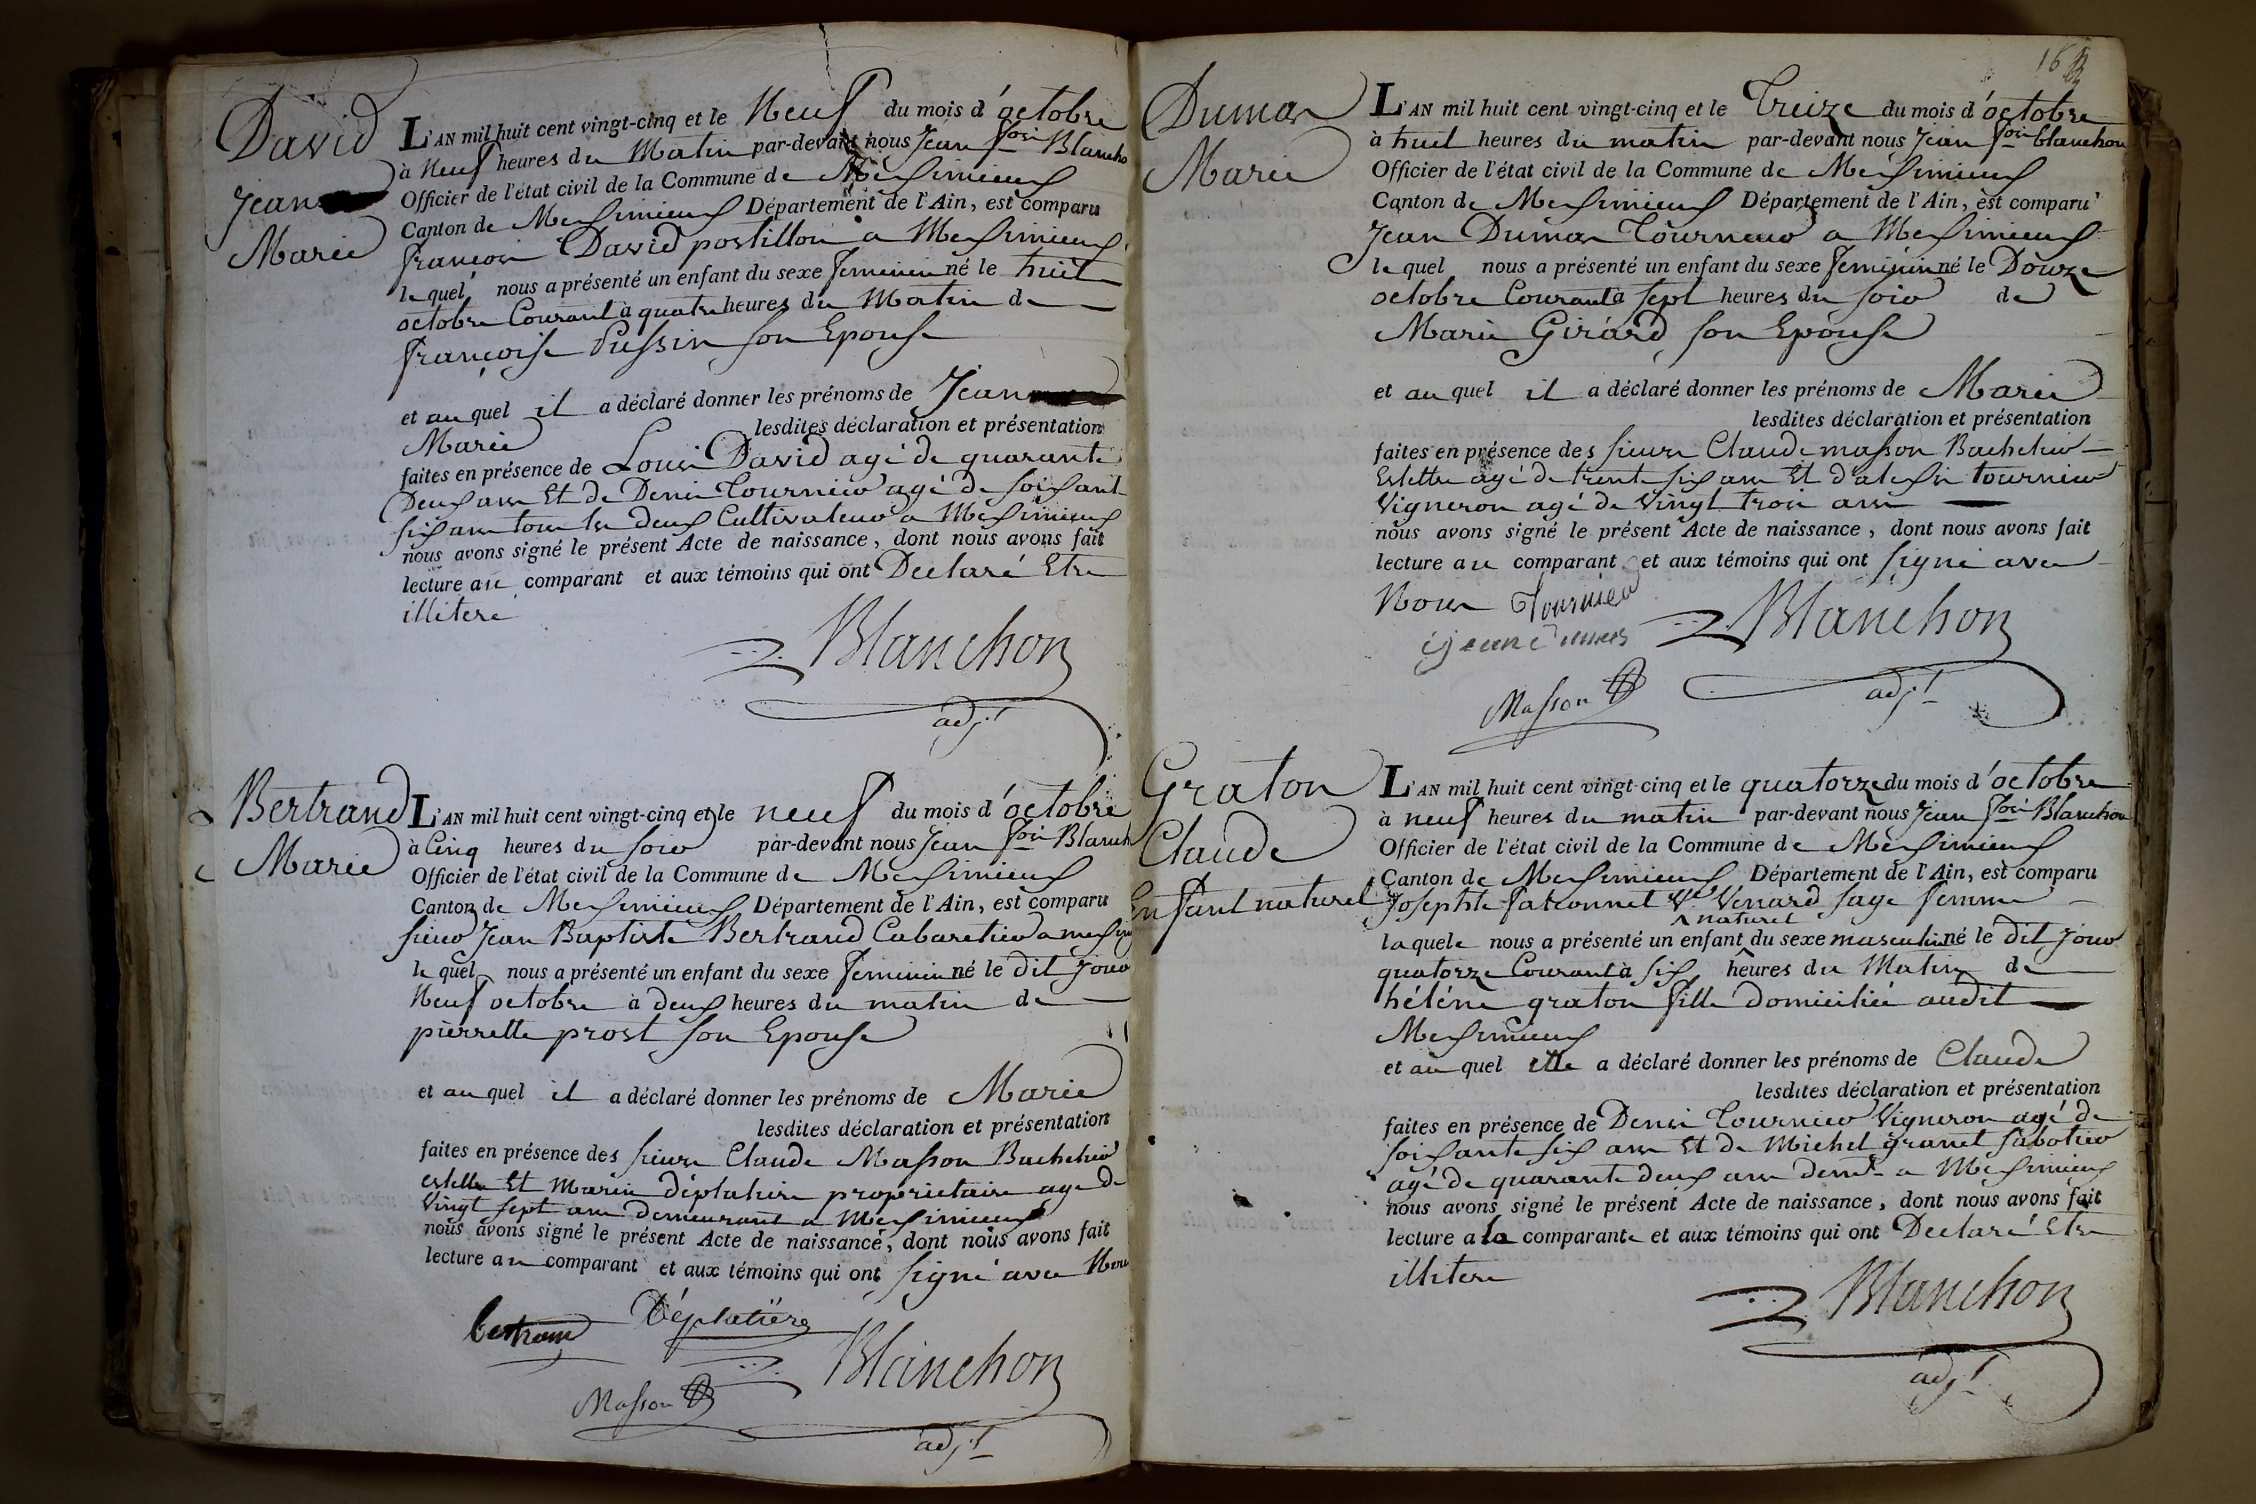 David
Jean
Marie
L'AN mil huit cent vingt-cinq et le Neuf du mois d'octobre
à Neuf heures du Matin par-devant nous Jean foi Blancho
Officier de l'état civil de la Commune de Messimieux
Canton de Messimieux Département de l'Ain, est comparu
françois David postillon a Messimieux
le quel nous a présenté un enfant du sexe feminin né le huit
octobre Courant à quatre heures du Matin de
françoise Pussin son Epouse
et au quel il a déclaré donner les prénoms de Jean
Marie lesdites déclaration et présentation
faites en présence de Louis David agé de quarante
Deux ans Et de Denis Tournieu agé de soixante
six ans tous les deux Cultivateurs a Messimieux
nous avons signé le présent Acte de naissance, dont nous avons fait
lecture au comparant et aux témoins qui ont Declaré Etre
illiteré
Blanchon
adj.t
Bertrand
Marie
L'AN mil huit cent vingt-cinq et le neuf du mois d'octobre
à Cinq heures du soir par-devant nous Jean foi Blanch
Officier de l'état civil de la Commune de Messimieux
Canton de Messimieux Département de l'Ain, est comparu
sieur Jean Baptiste Bertrand Cabaretier a messim
le quel nous a présenté un enfant du sexe feminin né le dit Jour
Neuf octobre à deux heures du matin de
pierrette prost son Epouse
et au quel il a déclaré donner les prénoms de Marie
lesdites déclaration et présentation
faites en présence des sieurs Claude Masson Bachelier
eslettre Et Marin déplatière proprietaire age de
Vingt sept ans demeurant a Messimieux
nous avons signé le présent Acte de naissance, dont nous avons fait
lecture au comparant et aux témoins qui ont signé avec Nous
bertrand Déplatière
Blanchon
Masson
adj.t
16
Dumas
Marie
L'AN mil huit cent vingt-cinq et le Treize du mois d'octobre
à huit heures du matin par-devant nous Jean foi blanchon
Officier de l'état civil de la Commune de Messimieux
Canton de Messimieux Département de l'Ain, est comparu
Jean Dumas Tourneur a Messimieux
le quel nous a présenté un enfant du sexe feminin né le Douze
octobre Courant à sept heures du soir de
Marie Girard son Epouse
et au quel il a déclaré donner les prénoms de Marie
lesdites déclaration et présentation
faites en présence des sieurs Claude masson Bachelier
Eslettre agé de trente six ans Et d'alexis tournieu
Vigneron agé de Vingt trois ans
nous avons signé le présent Acte de naissance, dont nous avons fait
lecture au comparant et aux témoins qui ont signé avec
Nous Tournieu
Blanchon
jean dumas
Masson
adj.t
Graton
Claude
Enfant naturel
L'AN mil huit cent vingt-cinq et le quatorze du mois d'octobre
à neuf heures du matin par-devant nous Jean foi Blanchon
Officier de l'état civil de la Commune de Messimieux
Canton de Messimieux Département de l'Ain, est comparu
Josephte fatconnet Ve Venard sage femme
naturel
la quele nous a présenté un enfant du sexe masculin né le dit Jour
quatorze Courant à six heures du Matin de
hélène graton fille domiciliée audit
Messimieux
et au quel elle a déclaré donner les prénoms de Claude
lesdites déclaration et présentation
faites en présence de Denis Tournieu Vigneron agé de
soixante six ans Et de Michel granet sabotier
agé de quarante deux ans demt a Messimieux
nous avons signé le présent Acte de naissance, dont nous avons fait
lecture a la comparante et aux témoins qui ont Declaré Etre
illitere
Blanchon
adj.t